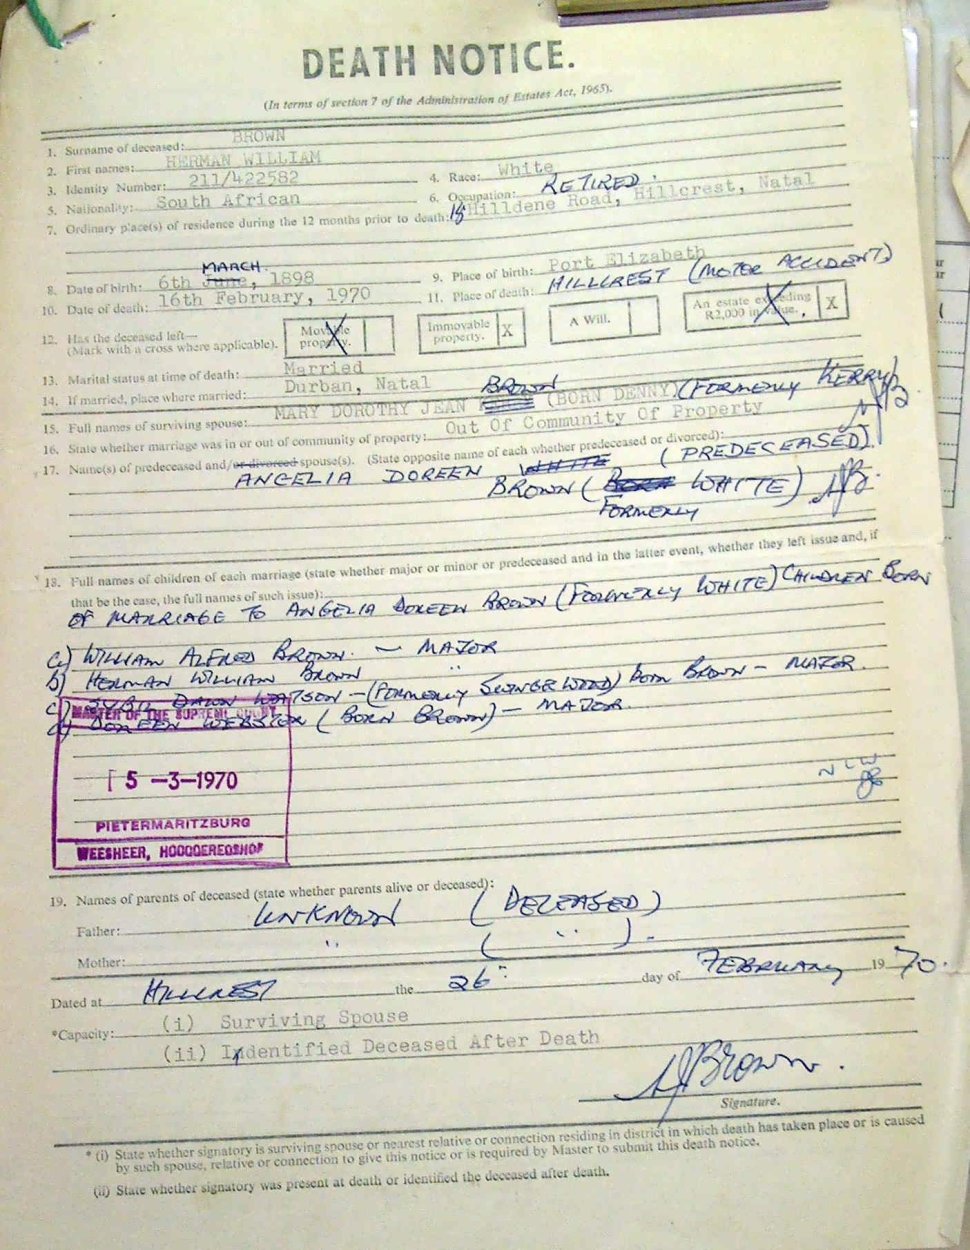 DEATH NOTICE.
(In terms of section 7 of the Administration of Estates Act, 1965).
1. Surname of deceased: BROWN
2. First names: HERMAN WILLIAM
3. Identity Number: 211/422582 4. Race: White
5. Nationality: South African 6. Occupation: RETIRED.
7. Ordinary place(s) of residence during the 12 months prior to death: Hilldene Road, Hillcrest, Natal
MARCH.
8. Date of birth: 6th June, 1898 9. Place of birth: Port Elizabeth
10. Date of death: 16th February, 1970 11. Place of death: HILLCREST (MOTOR ACCIDENT)
12. Has the deceased left— (Mark with a cross where applicable). Movable property. Immovable property. X A Will. An estate exceeding R2,000 in value. X
13. Marital status at time of death: Married
14. If married, place where married: Durban, Natal
15. Full names of surviving spouse: MARY DOROTHY JEAN BROWN (BORN DENNY) (FORMERLY KERRY)
16. State whether marriage was in or out of community of property: Out Of Community Of Property
17. Name(s) of predeceased and/or divorced spouse(s). (State opposite name of each whether predeceased or divorced):
ANGELIA DOREEN WHITE (PREDECEASED)
BROWN (BORN WHITE)
FORMERLY
18. Full names of children of each marriage (state whether major or minor or predeceased and in the latter event, whether they left issue and, if
that be the case, the full names of such issue):
OF MARRIAGE TO ANGELIA DOREEN BROWN (FORMERLY WHITE) CHILDREN BORN
a) WILLIAM ALFRED BROWN. — MAJOR
b) HERMAN WILLIAM BROWN "
c) SYBIL DAWN WATSON — (FORMERLY SLINGERWOOD) BORN BROWN — MAJOR.
d) DOREEN WEBSTER (BORN BROWN) — MAJOR.
MASTER OF THE SUPREME COURT
5 -3-1970
PIETERMARITZBURG
WEESHEER, HOOGGEREGSHOF
19. Names of parents of deceased (state whether parents alive or deceased):
Father: UNKNOWN (DECEASED)
Mother: " ( " ).
Dated at HILLCREST the 26 day of FEBRUARY 1970.
*Capacity: (i) Surviving Spouse
(ii) Identified Deceased After Death
Brown.
Signature.
* (i) State whether signatory is surviving spouse or nearest relative or connection residing in district in which death has taken place or is caused
by such spouse, relative or connection to give this notice or is required by Master to submit this death notice.
(ii) State whether signatory was present at death or identified the deceased after death.